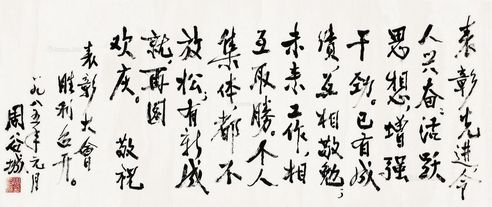 表彰先进令
人兴奋，活跃
思想，增强
干劲。已有成
绩，互相敬勉，
未来工作，相
互取勝。个人
集体都不
放松，有新成
就，再图
欢庆。 敬祝
表彰大會
胜利召开。
一九八五年元月
周谷城